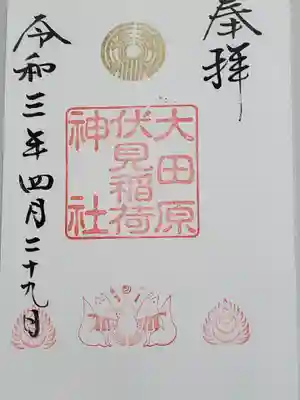 奉拝
大田原
伏見稲荷
神社
令和三年四月二十九日